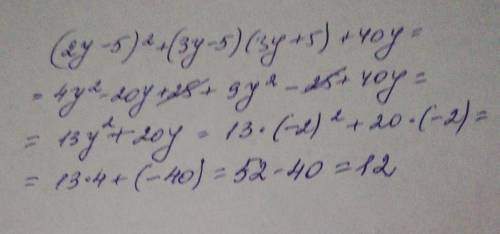 (2y-5)²+(3y-5)(3y+5)+40y=
=4y²-20y+25+9y²-25+40y=
=13y²+20y=13·(-2)²+20·(-2)=
=13·4+(-40)=52-40=12